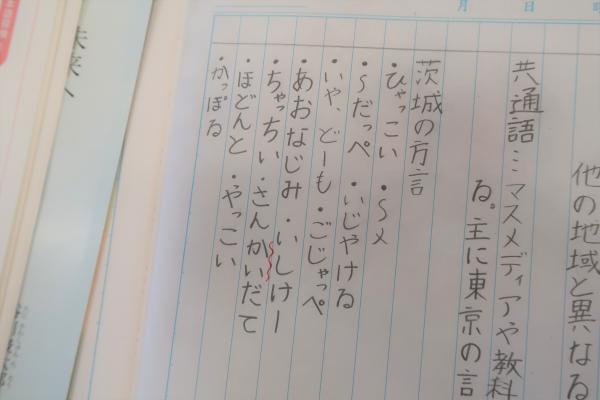 月 日
他の地域と異なる
共通語…マスメディアや教科
る。主に東京の言
茨城の方言
・ひゃっこい ・〜メ
・〜だっぺ ・いじゃける
・いや、どーも ・ごじゃっぺ
・あおなじみ ・いしけー
・ちゃっちい ・さんかいだて
・ほどんと ・やっこい
・かっぽる
未来へ